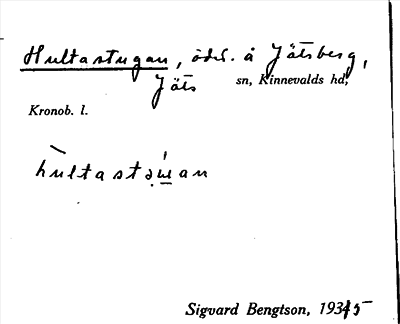 Hultastugan, öde l. å Jätsberg,
Jäts sn, Kinnevalds hd,
Kronob. l.
hultast
Sigvard Bengtson, 1935